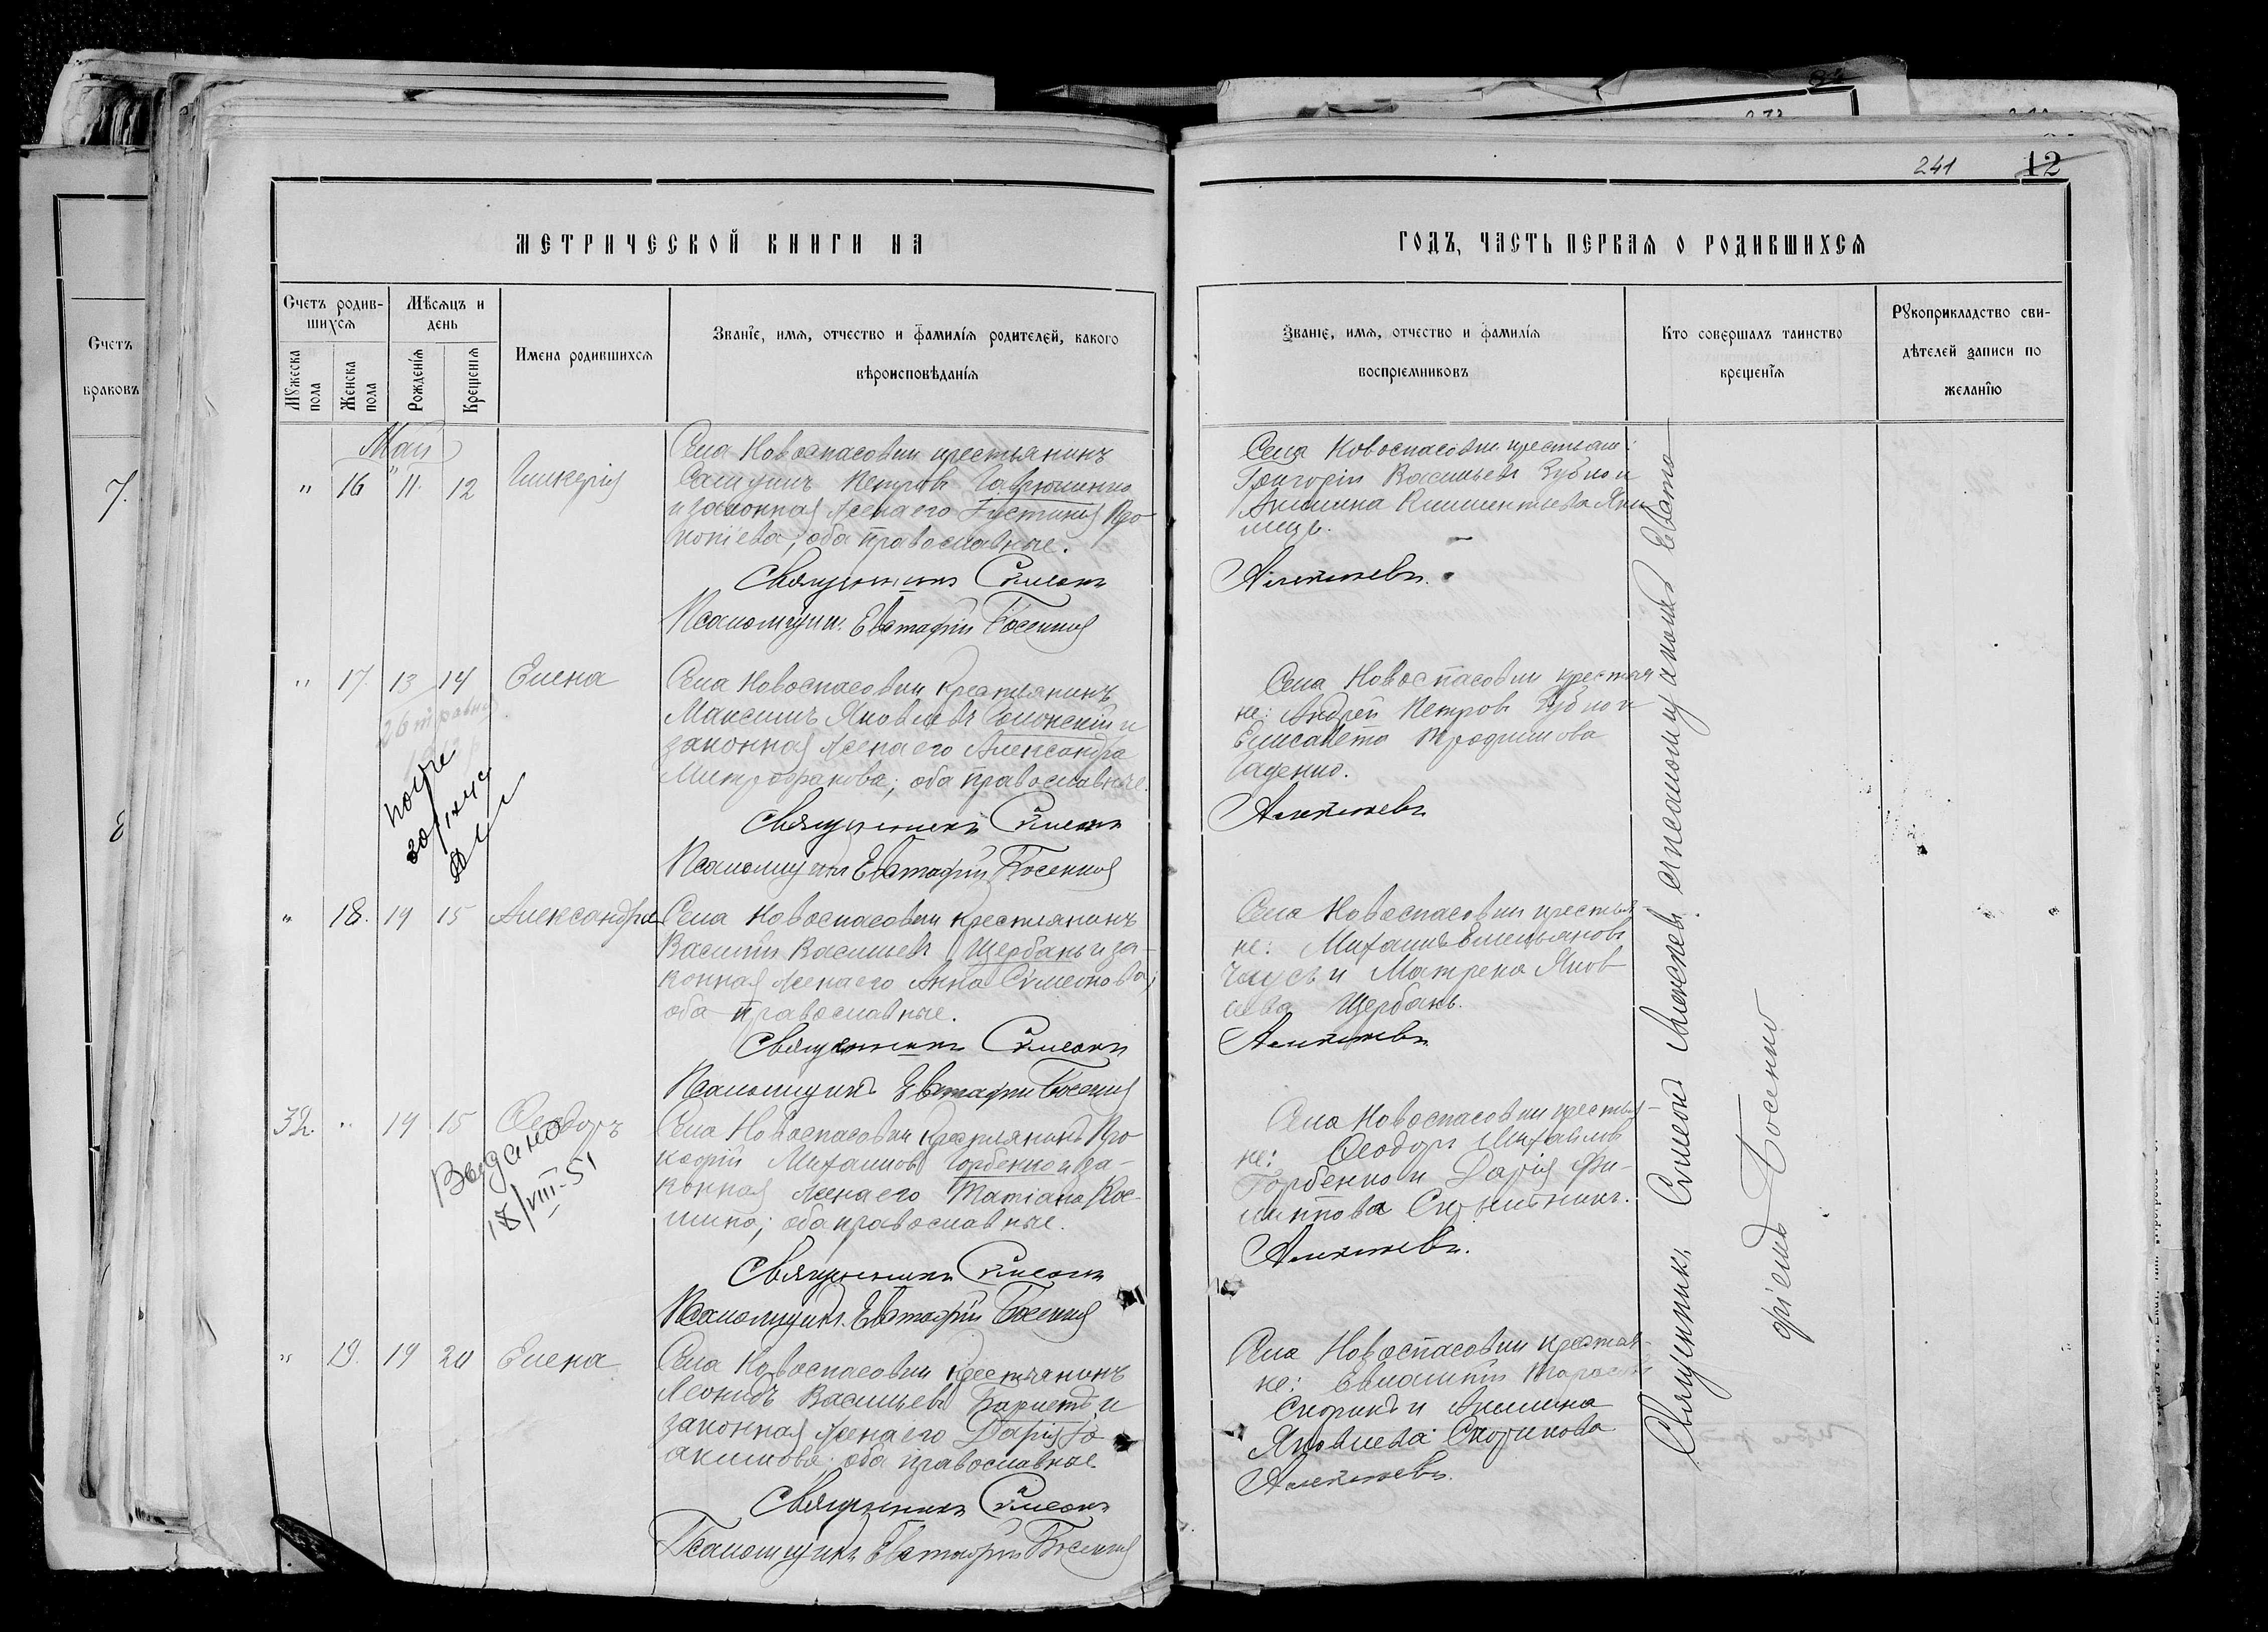 241 12
МЕТРИЧЕСКОЙ КНИГИ НА ГОДЪ, ЧАСТЬ ПЕРВАЯ О РОДИВШИХСЯ
Счетъ браковъ
7.
8
Счетъ родившихся
Мужеска пола
Женска пола
Мѣсяцъ и день
Рожденія
Крещенія
Имена родившихся
Званіе, имя, отчество и фамилія родителей, какого
вѣроисповѣданія
Званіе, имя, отчество и фамилія
воспріемниковъ
Кто совершалъ таинство
крещенія
Рукоприкладство сви-
дѣтелей записи по
желанію
Май
" 16 11. 12 Гликерія
Села Новоспасовки крестьянинъ
Петровъ Гаврюшенко
и законная жена его Іустинія Про-
копіева; оба православные.
Священникъ Сѵмеонъ
Псаломщикъ Евстафій Косенко
Села Новоспасовки крестьяне:
Григорій Васильевъ Зубко и
Акилина Климентьева
Алексѣевъ.
" 17. 13 14 Елена
Села Новоспасовки крестьянинъ
Максимъ Яковлевъ и
законная жена его Александра
Митрофанова; оба православные.
Священникъ Сѵмеонъ
Псаломщикъ Евстафій Косенко
Села Новоспасовки крестья
не: Андрей Петровъ Зубко и
Елисавета Трофимова
Гаденко.
Алексѣевъ
" 18. 14 15 Александра
Села Новоспасовки крестьянинъ
Василій Васильевъ Щербань и за-
конная жена его Анна Сѵмеонова;
оба православные.
Священникъ Сѵмеонъ
Псаломщикъ Евстафій Косенко
Села Новоспасовки крестья-
не: Михаилъ Емельяновъ
Чаусъ и Матрена Яков
лева Щербань.
Алексѣевъ
32. " 14 15 Ѳеодоръ
Выдано
18/VIII-51
Села Новоспасовки крестьянинъ Про
кофій Михаиловъ Горбенко и за-
конная жена его Татіана Кос-
мина; оба православные.
Священникъ Сѵмеонъ
Псаломщикъ Евстафій Косенко
Села Новоспасовки крестья-
не: Ѳеодоръ Михаиловъ
Горбенко и Дарія Фи-
липпова
Алексѣевъ.
" 19. 19 20 Елена
Села Новоспасовки крестьянинъ
Леонидъ Васильевъ и
законная жена его Дарія Іо-
акимова; оба православные
Священникъ Сѵмеонъ
Псаломщикъ Евстафій Косенко
Села Новоспасовки крестья-
не: Евлампій Тарасовъ
Скорикъ и Акилина
Яковлева Скорикова
Алексѣевъ.
Священникъ Сѵмеонъ Алексѣевъ съ псаломщикомъ Евста
фіемъ Косенко